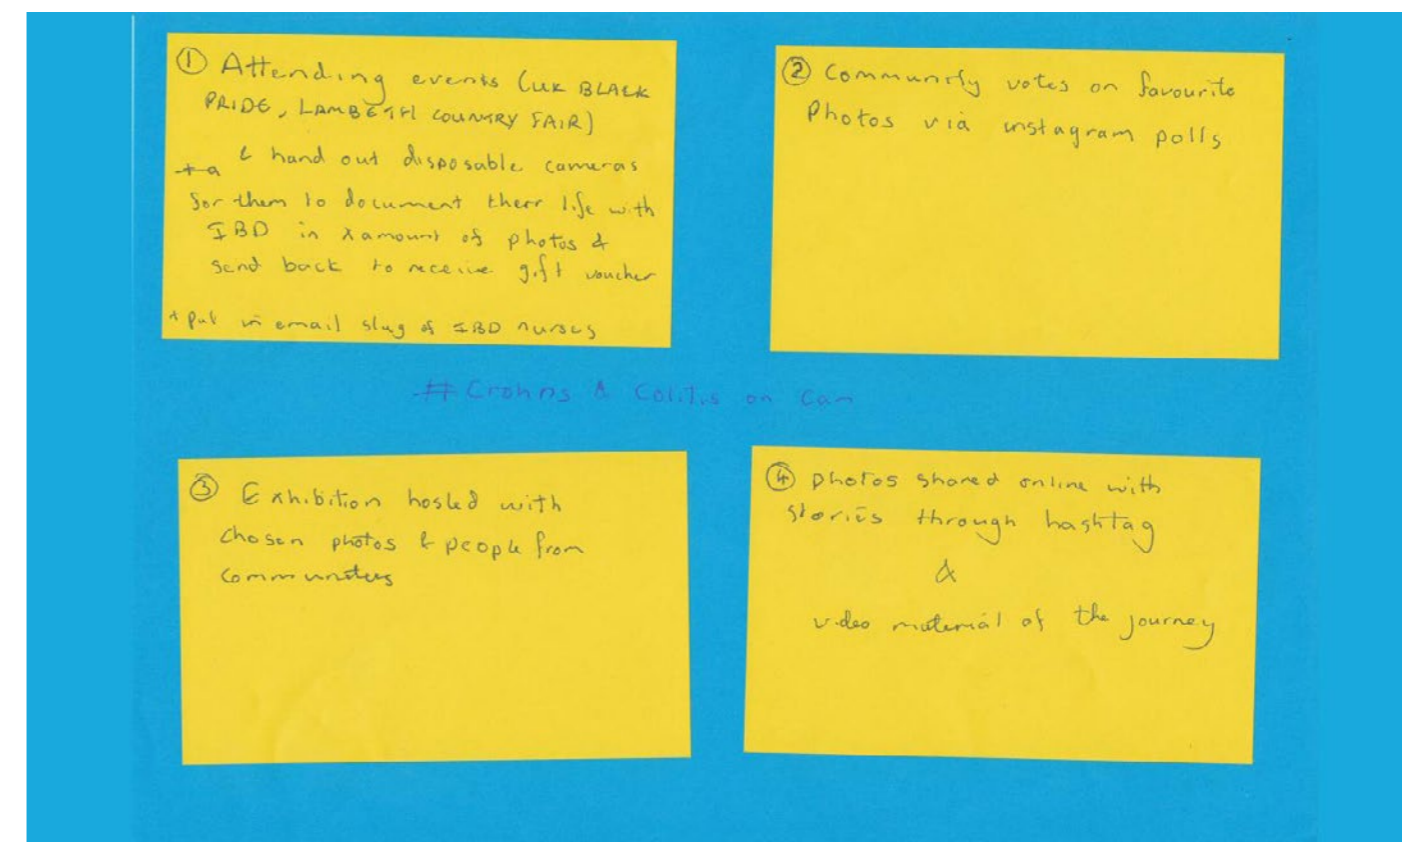 ① Attending events (UK BLACK
PRIDE, LAMBETH COUNTRY FAIR)
& hand out disposable cameras
for them to document their life with
IBD in x amount of photos &
send back to receive gift voucher
+ put in email slug of IBD nurses
② Community votes on favourite
Photos via instagram polls
# Crohns & Colitis on Cam
③ Exhibition hosted with
chosen photos & people from
communities
④ photos shared online with
stories through hashtag
&
video material of the journey